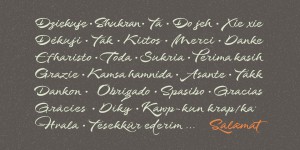 Dziękuje • Shukran • Tá • Do jeh • Xie xie
Děkuji • Tak • Kiitos • Merci • Danke
Efharisto • Toda • Sukria • Terima kasih
Grazie • Kamsa hamnida • Asante • Takk
Dankon • Obrigado • Spasibo • Gracias
Gràcies • Díky • Kawp-kun krap/ka'
Hvala • Teşekkür ederim ... Salamat